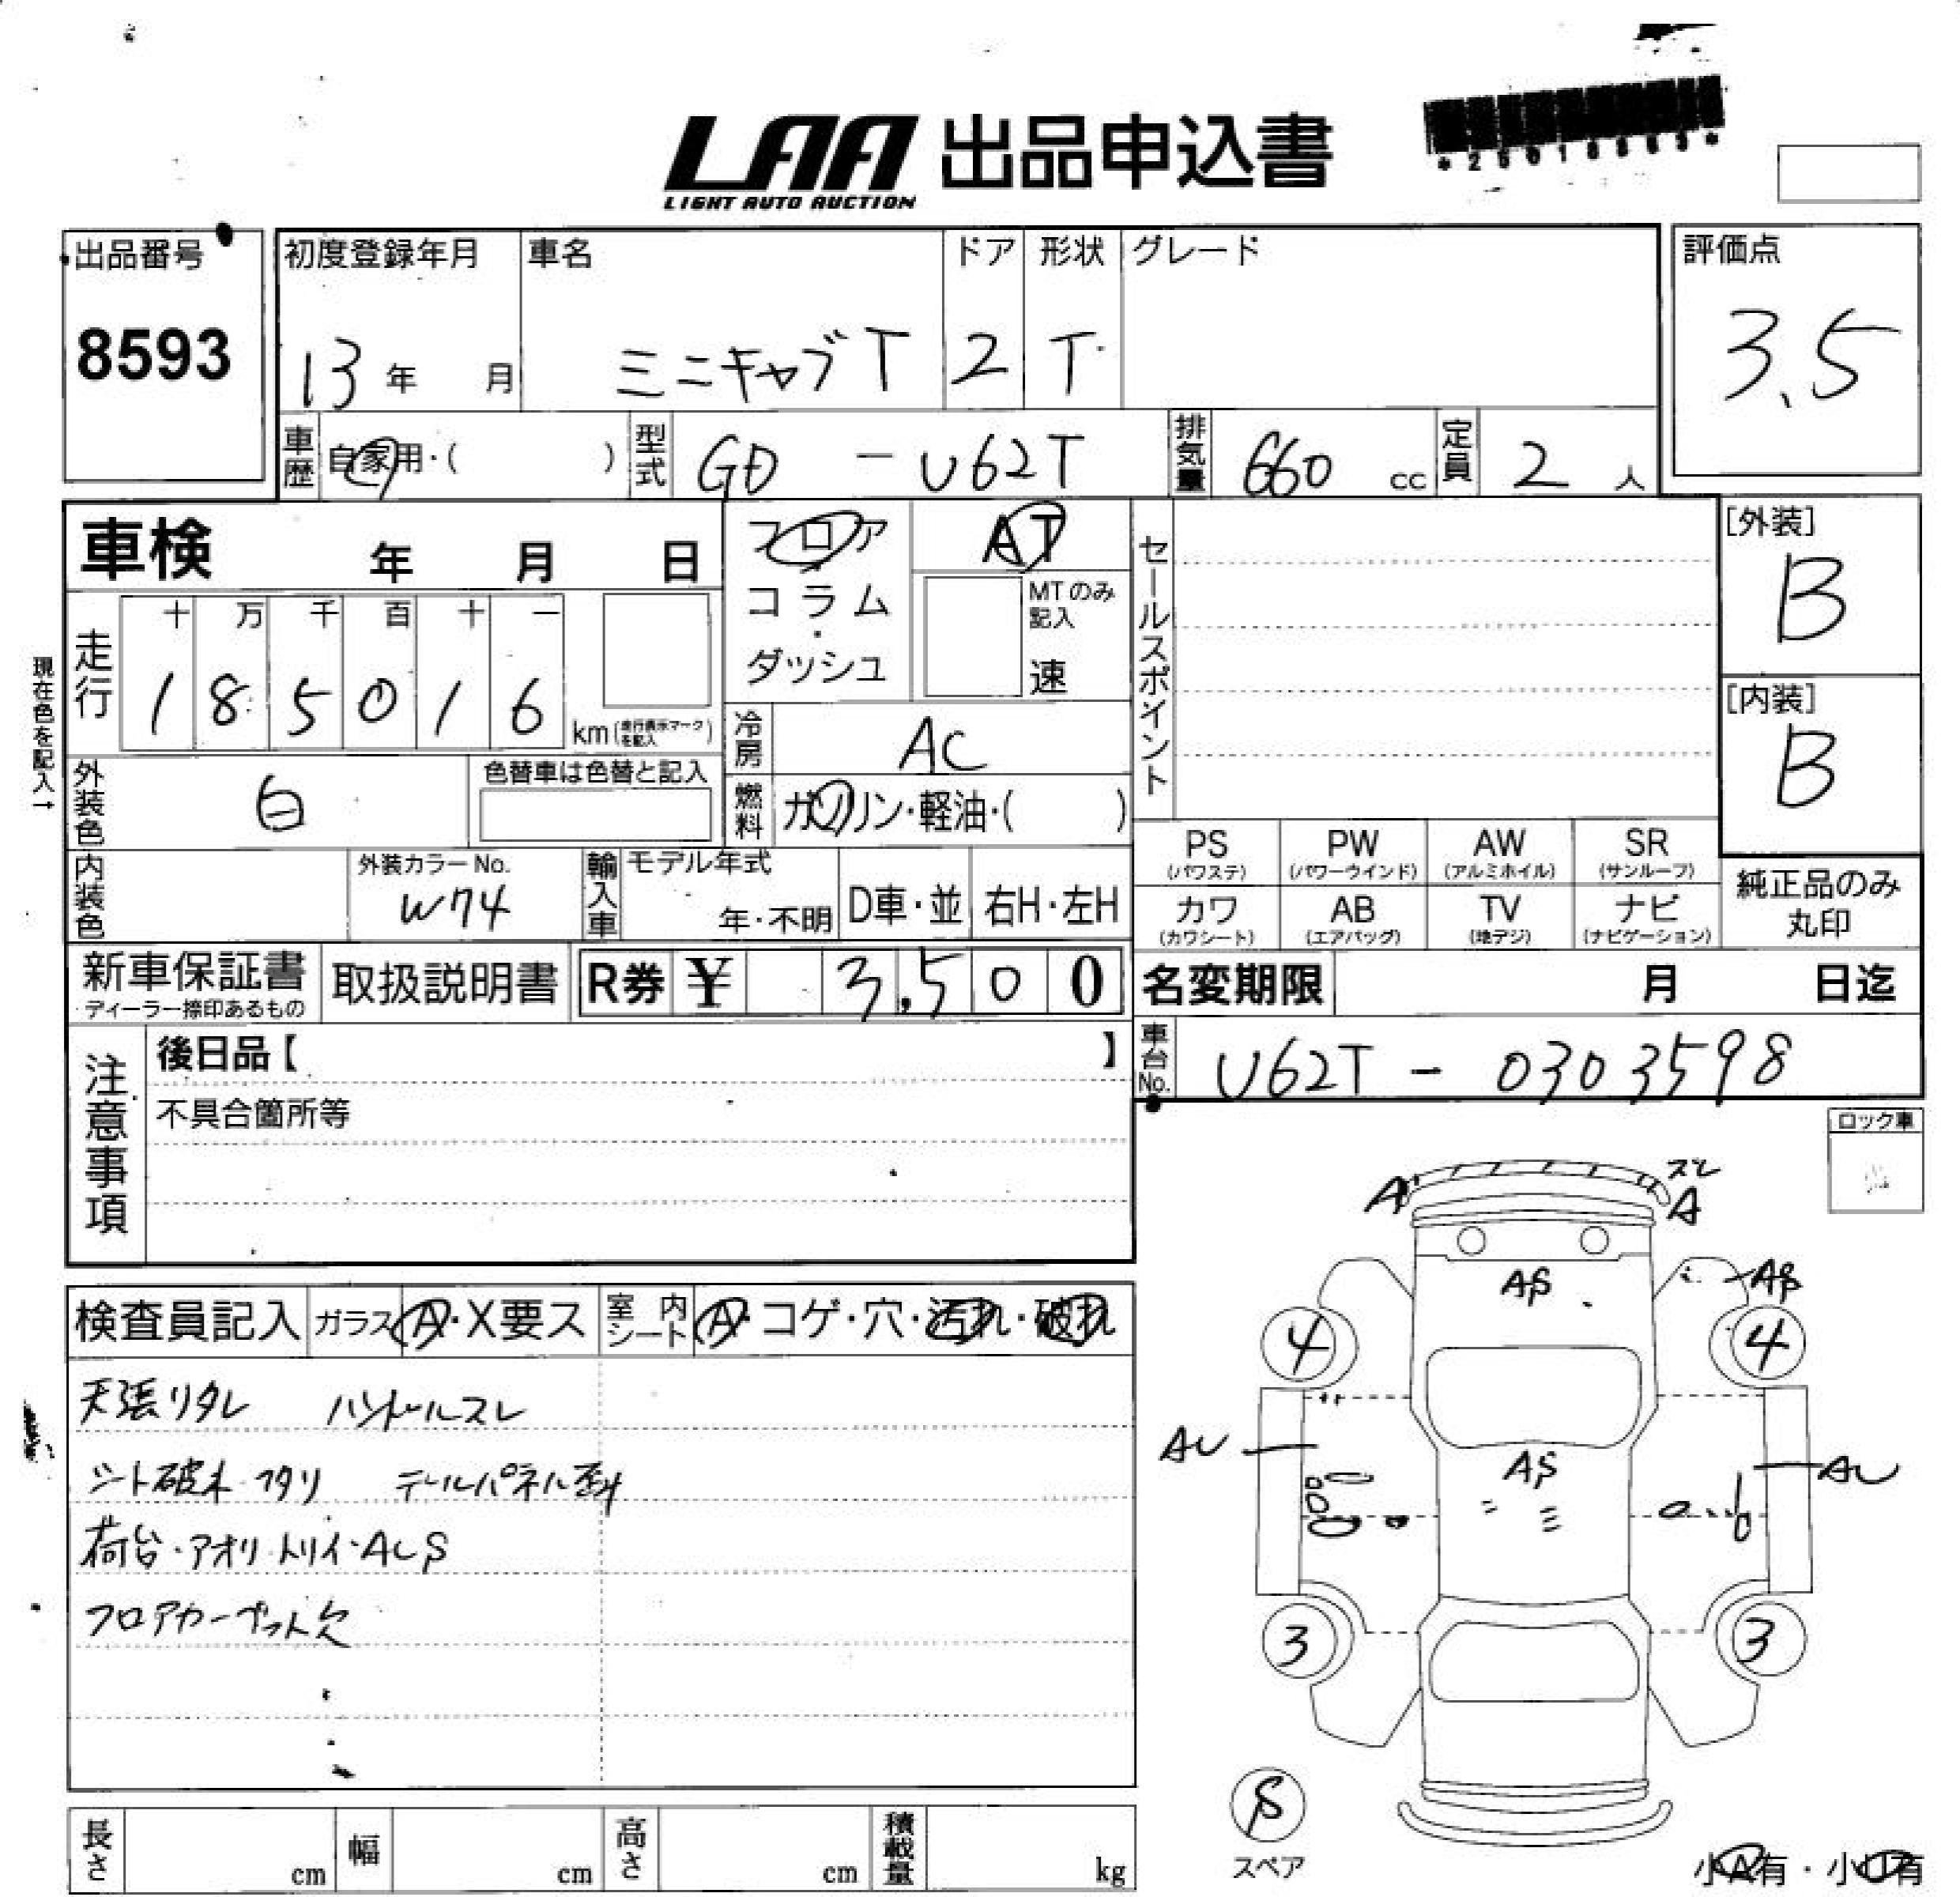 LAA 出品申込書
LIGHT AUTO AUCTION
出品番号
8593
初度登録年月 車名 ドア 形状 グレード
13年 月 ミニキャブT 2 T
評価点
3.5
車歴 自家用・( ) 型式 GD - U62T 排気量 660 cc 定員 2 人
車検 年 月 日
フロア
コラム
・
ダッシュ
AT
MTのみ
記入
速
セールスポイント
[外装]
B
[内装]
B
現在色を記入→
走行 十 万 千 百 十 一
1 8 5 0 1 6 km(走行表示マークを記入)
冷房 AC
燃料 ガソリン・軽油・( )
外装色 白 色替車は色替と記入
内装色 外装カラーNo.
W74
輸入車 モデル年式
年・不明 D車・並 右H・左H
PS (パワステ) PW (パワーウインド) AW (アルミホイル) SR (サンルーフ)
カワ (カワシート) AB (エアバッグ) TV (地デジ) ナビ (ナビゲーション)
純正品のみ
丸印
新車保証書
ディーラー捺印あるもの
取扱説明書 R券 ¥ 3,500
名変期限 月 日迄
車台No. U62T - 0303598
注意事項
後日品【 】
不具合箇所等
ロック車
検査員記入 ガラス A・X要ス 室内シート A・コゲ・穴・汚れ・破れ
天張りタレ ハンドルスレ
シート破れ・フタリ テールパネル歪
荷台・アオリ・トリイ・AUS
フロアカーペット欠
A ズレ A
AS AS
4 4
AU AS AU
3 3
S
スペア
小A有・小U有
長さ cm 幅 cm 高さ cm 積載量 kg